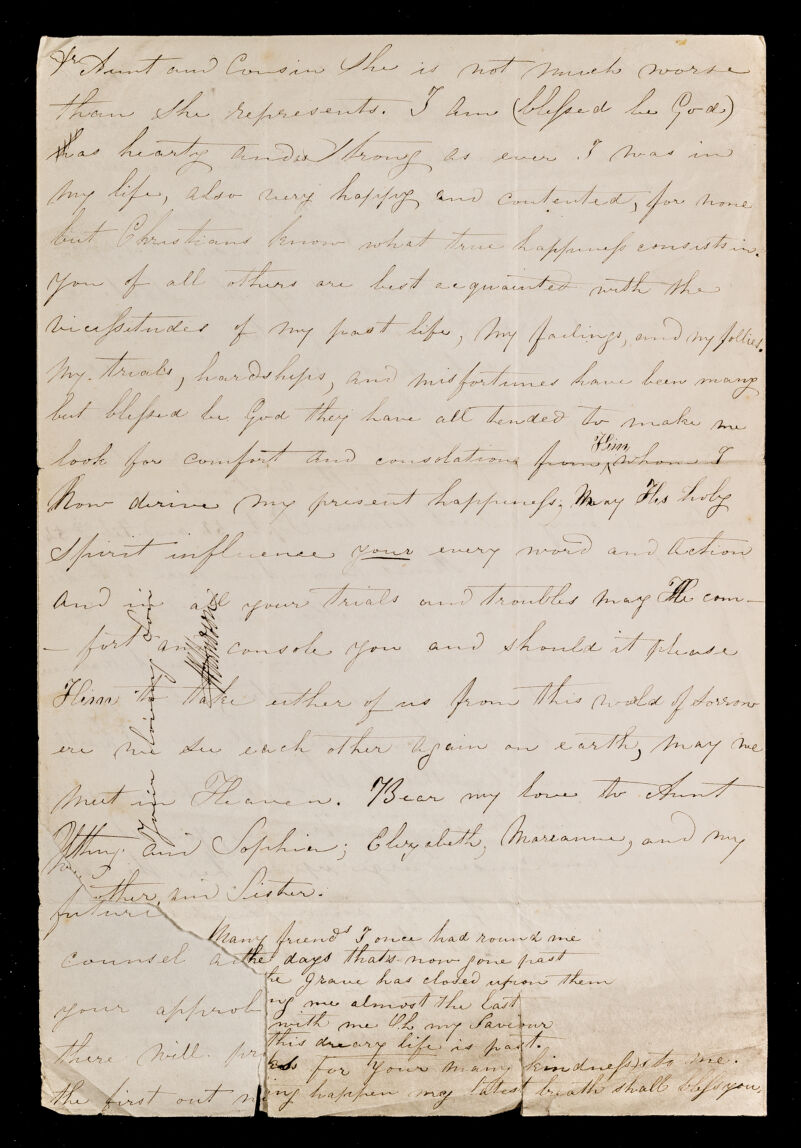 Dr Aunt and Cousin She is not much worse
than she represents. I am (blessed be God)
as hearty and strong as ever I was in
my life, also very happy and contented, for none
but Christians know what true happiness consists in.
You of all others are best acquainted with the
vicissitudes of my past life, my failings, and my follies.
My trials, hardships, and misfortunes have been many
but blessed be God they have all tended to make me
look for comfort and consolation from Him whom I
now derive my present happiness. May His holy
spirit influence your every word and action
and in all your trials and troubles may He com–
– fort and console you and should it please
Him to take either of us from this world of sorrow
ere we see each other again on earth, may we
meet in Heaven. Bear my love to Aunt
and Sophia; Elizabeth, Marianne, and my
Sister.
Your loving Son
future
counsel a
your approb
there will pr
the first out
Many friends I once had round me
the days thats now gone past
e grave has closed upon them
ng me almost the last
with me Oh my Saviour
this dreary life is past.
for your many kindness's to me.
ing happen my latest breath shall bless you,